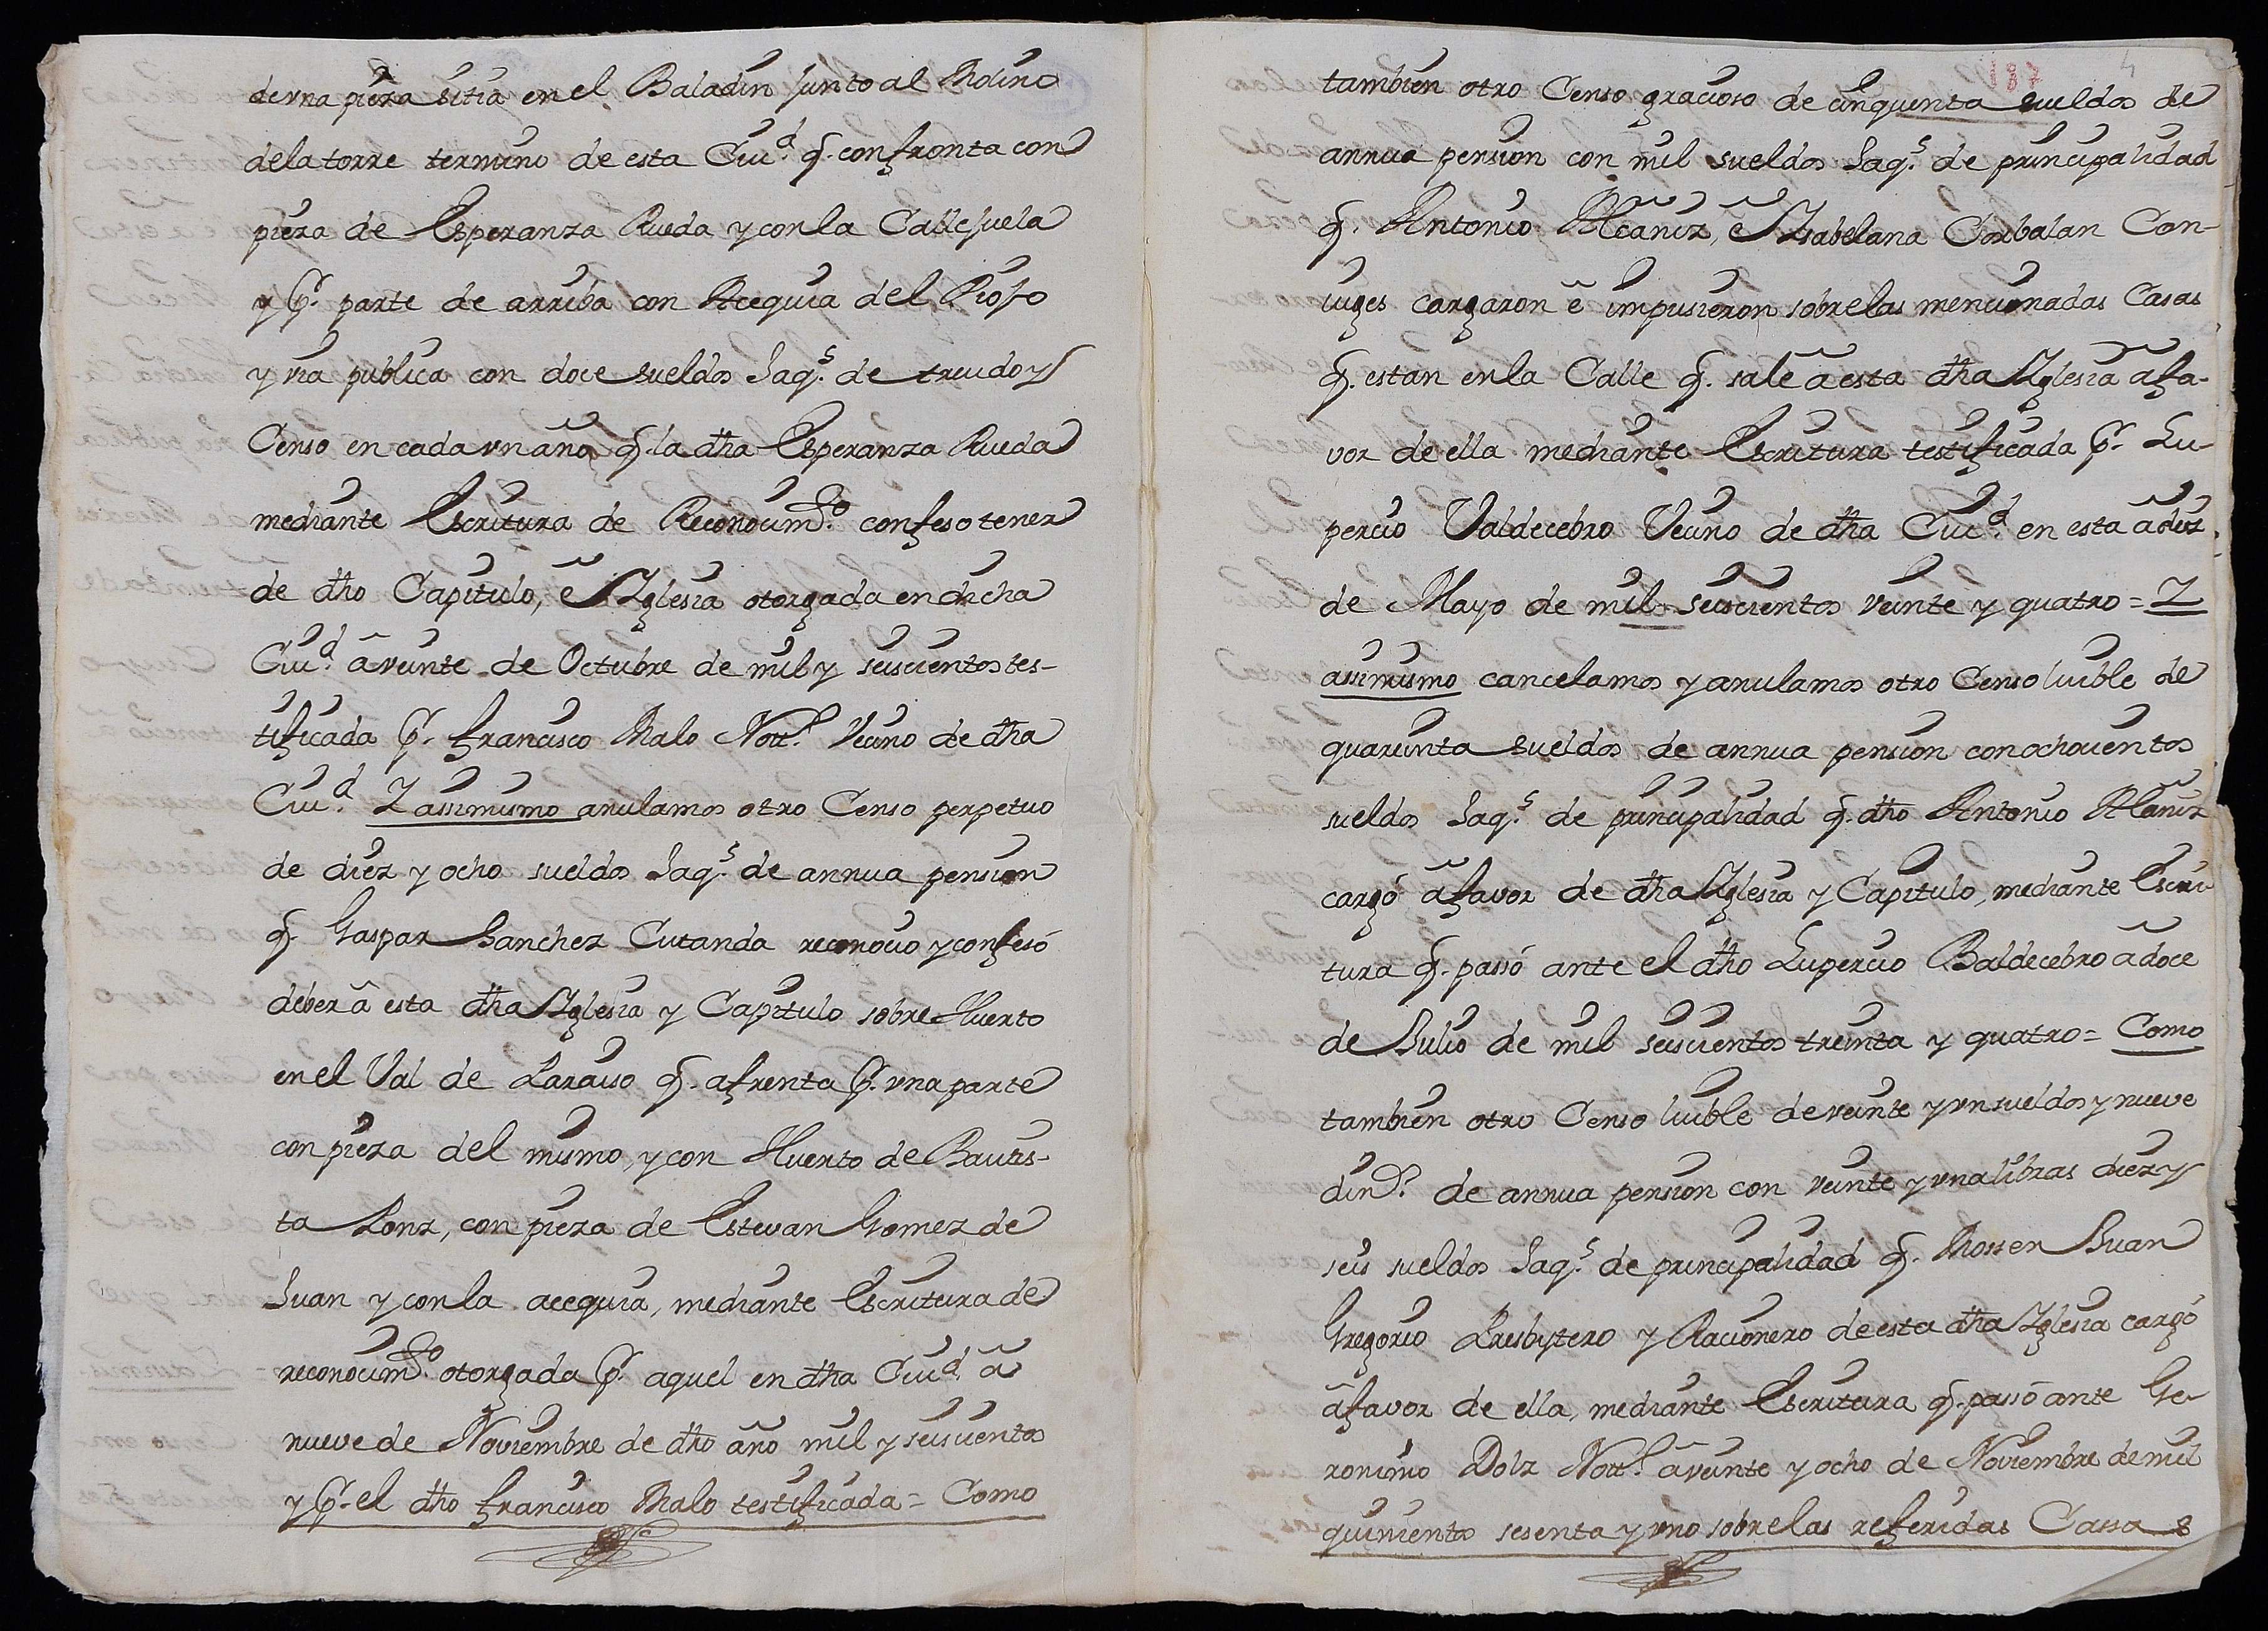 de vna pieza sitia en el Baladin junto al Molino
de la torre termino de esta Ciu.d q. confronta con
pieza de Esperanza Rueda y con la Callejuela
y p.r parte de arriba con Acequia del Riojo
y via publica con doce sueldos Jaq.s de treudo y
Censo en cada vn año q. la dha Esperanza Rueda
mediante Escritura de Reconocim.to confeso tener
de dho Capitulo, ê Iglesia otorgada en dicha
Ciu.d â veinte de Octubre de mil y seiscientos tes-
tificada p.r Francisco Malo Nott.o Vecino de dha
Ciu.d Y assimismo anulamos otro Censo perpetuo
de diez y ocho sueldos Jaq.s de annua pension
q. Gaspar Sanchez Cutanda reconocio y confesó
deber â esta dha Iglesia y Capitulo sobre Huerto
en el Val de Paraiso q. afrenta p.r vna parte
con pieza del mismo, y con Huerto de Bautis-
ta Ponz, con pieza de Estevan Gomez de
Juan y con la acequia, mediante Escritura de
reconocim.to otorgada p.r aquel en dha Ciu.d â
nueve de Noviembre de dho año mil y seiscientos
y p.r el dho Francisco Malo testificada = Como
187 4
tambien otro Censo gracioso de cinquenta sueldos de
annua pension con mil sueldos Jaq.s de principalidad
q. Antonio Alcañiz, ê Isabelana Corbalan Con-
iuges cargaron ê impusieron sobre las mencionadas Casas
q. estan en la Calle q. sale â esta dha Iglesia â fa-
vor de ella mediante Escritura testificada p.r Lu-
percio Valdecebro Vecino de dha Ciu.d en esta â diez
de Mayo de mil seiscientos veinte y quatro = Y
assimismo cancelamos y anulamos otro Censo luible de
quarenta sueldos de annua pension con ochocientos
sueldos Jaq.s de principalidad q. dho Antonio Alcañiz
cargó â favor de dha Iglesia y Capitulo, mediante Escri-
tura q. passó ante el dho Lupercio Baldecebro â doce
de Julio de mil seiscientos treinta y quatro = Como
tambien otro Censo luible de veinte y vn sueldos y nueve
din.s de annua pension con veinte y vna libras diez y
seis sueldos Jaq.s de principalidad q. Mossen Juan
Gregorio Presbytero y Racionero de esta dha Iglesia cargó
â favor de ella, mediante Escritura q. passó ante Ge-
ronimo Dolz Nott.o â veinte y ocho de Noviembre de mil
quinientos sesenta y vno sobre las referidas Cassas